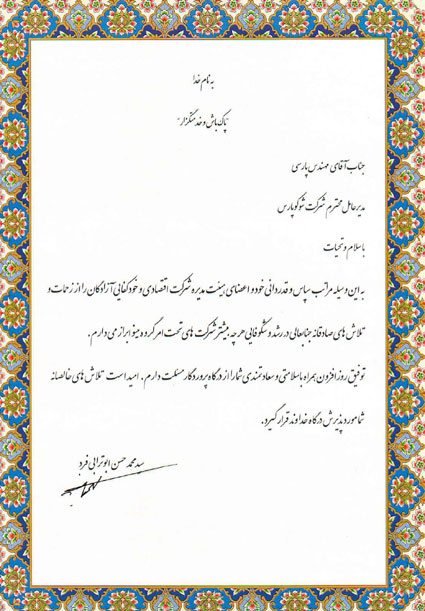 به نام خدا
"پاک باش و خدمتگزار"
جناب آقای مهندس پارسی
مدیر عامل محترم شرکت شوکو پارس
با سلام و تحیات
به این وسیله مراتب سپاس و قدردانی خود و اعضای هیئت مدیره شرکت اقتصادی و خودکفایی آزادگان را از زحمات و
تلاش های صادقانه جنابعالی در رشد و شکوفایی هر چه بیشتر شرکت های تحت امر گروه مینو ابراز می دارم.
توفیق روز افزون همراه با سلامتی و سعادتمندی شما را از درگاه پروردگار مسئلت دارم. امید است تلاش های خالصانه
شما مورد پذیرش درگاه خداوند قرار گیرد.
سید محمد حسن ابوترابی فرد